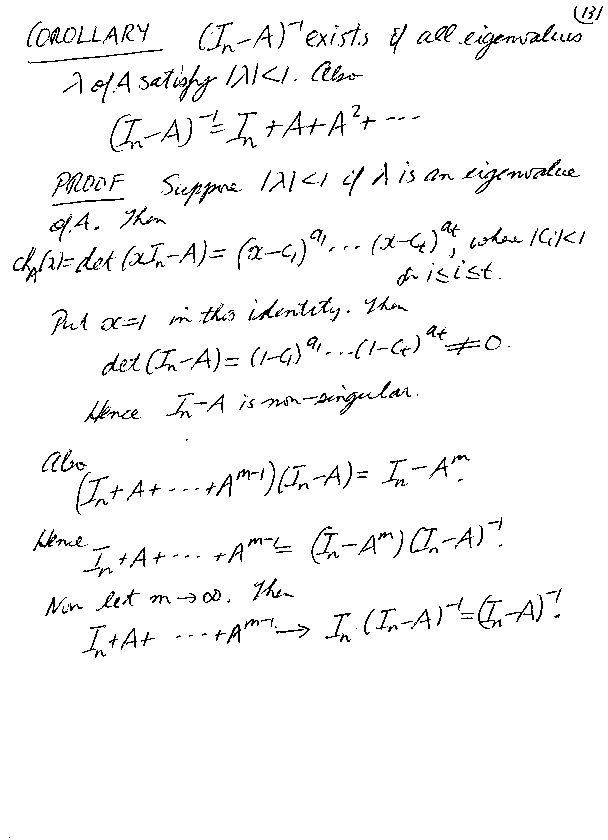 131
COROLLARY (Iₙ-A)⁻¹ exists if all eigenvalues
λ of A satisfy |λ|<1. Also
(Iₙ-A)⁻¹= Iₙ+A+A²+ ···
PROOF Suppose |λ|<1 if λ is an eigenvalue
of A. Then
ch_A(x)=det(xIₙ-A)= (x-c₁)^{a₁}···(x-c_t)^{a_t}, where |c_i|<1
for 1≤i≤t.
Put x=1 in this identity. Then
det(Iₙ-A)= (1-c₁)^{a₁}···(1-c_t)^{a_t}≠0.
Hence Iₙ-A is non-singular.
Also
(Iₙ+A+ ····+A^{m-1})(Iₙ-A)= Iₙ-A^m.
Hence
Iₙ+A+ ··· +A^{m-1}= (Iₙ-A^m)(Iₙ-A)⁻¹.
Now let m→∞. Then
Iₙ+A+ ····+A^{m-1}→ Iₙ·(Iₙ-A)⁻¹=(Iₙ-A)⁻¹.